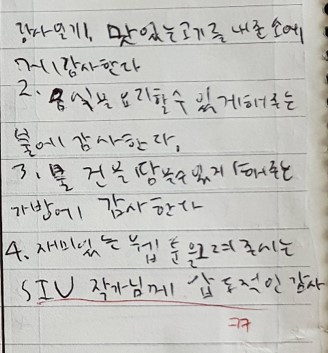 감사일기, 맛있는고기를 내준 소에
게 감사한다
2. 음식을 요리할수 있게해주는
불에 감사한다,
3. 물건을 담을수있게 해주는
가방에 감사한다
4. 재미있는 웹툰을 그려주시는
SIU 작가님께 압도적인 감사